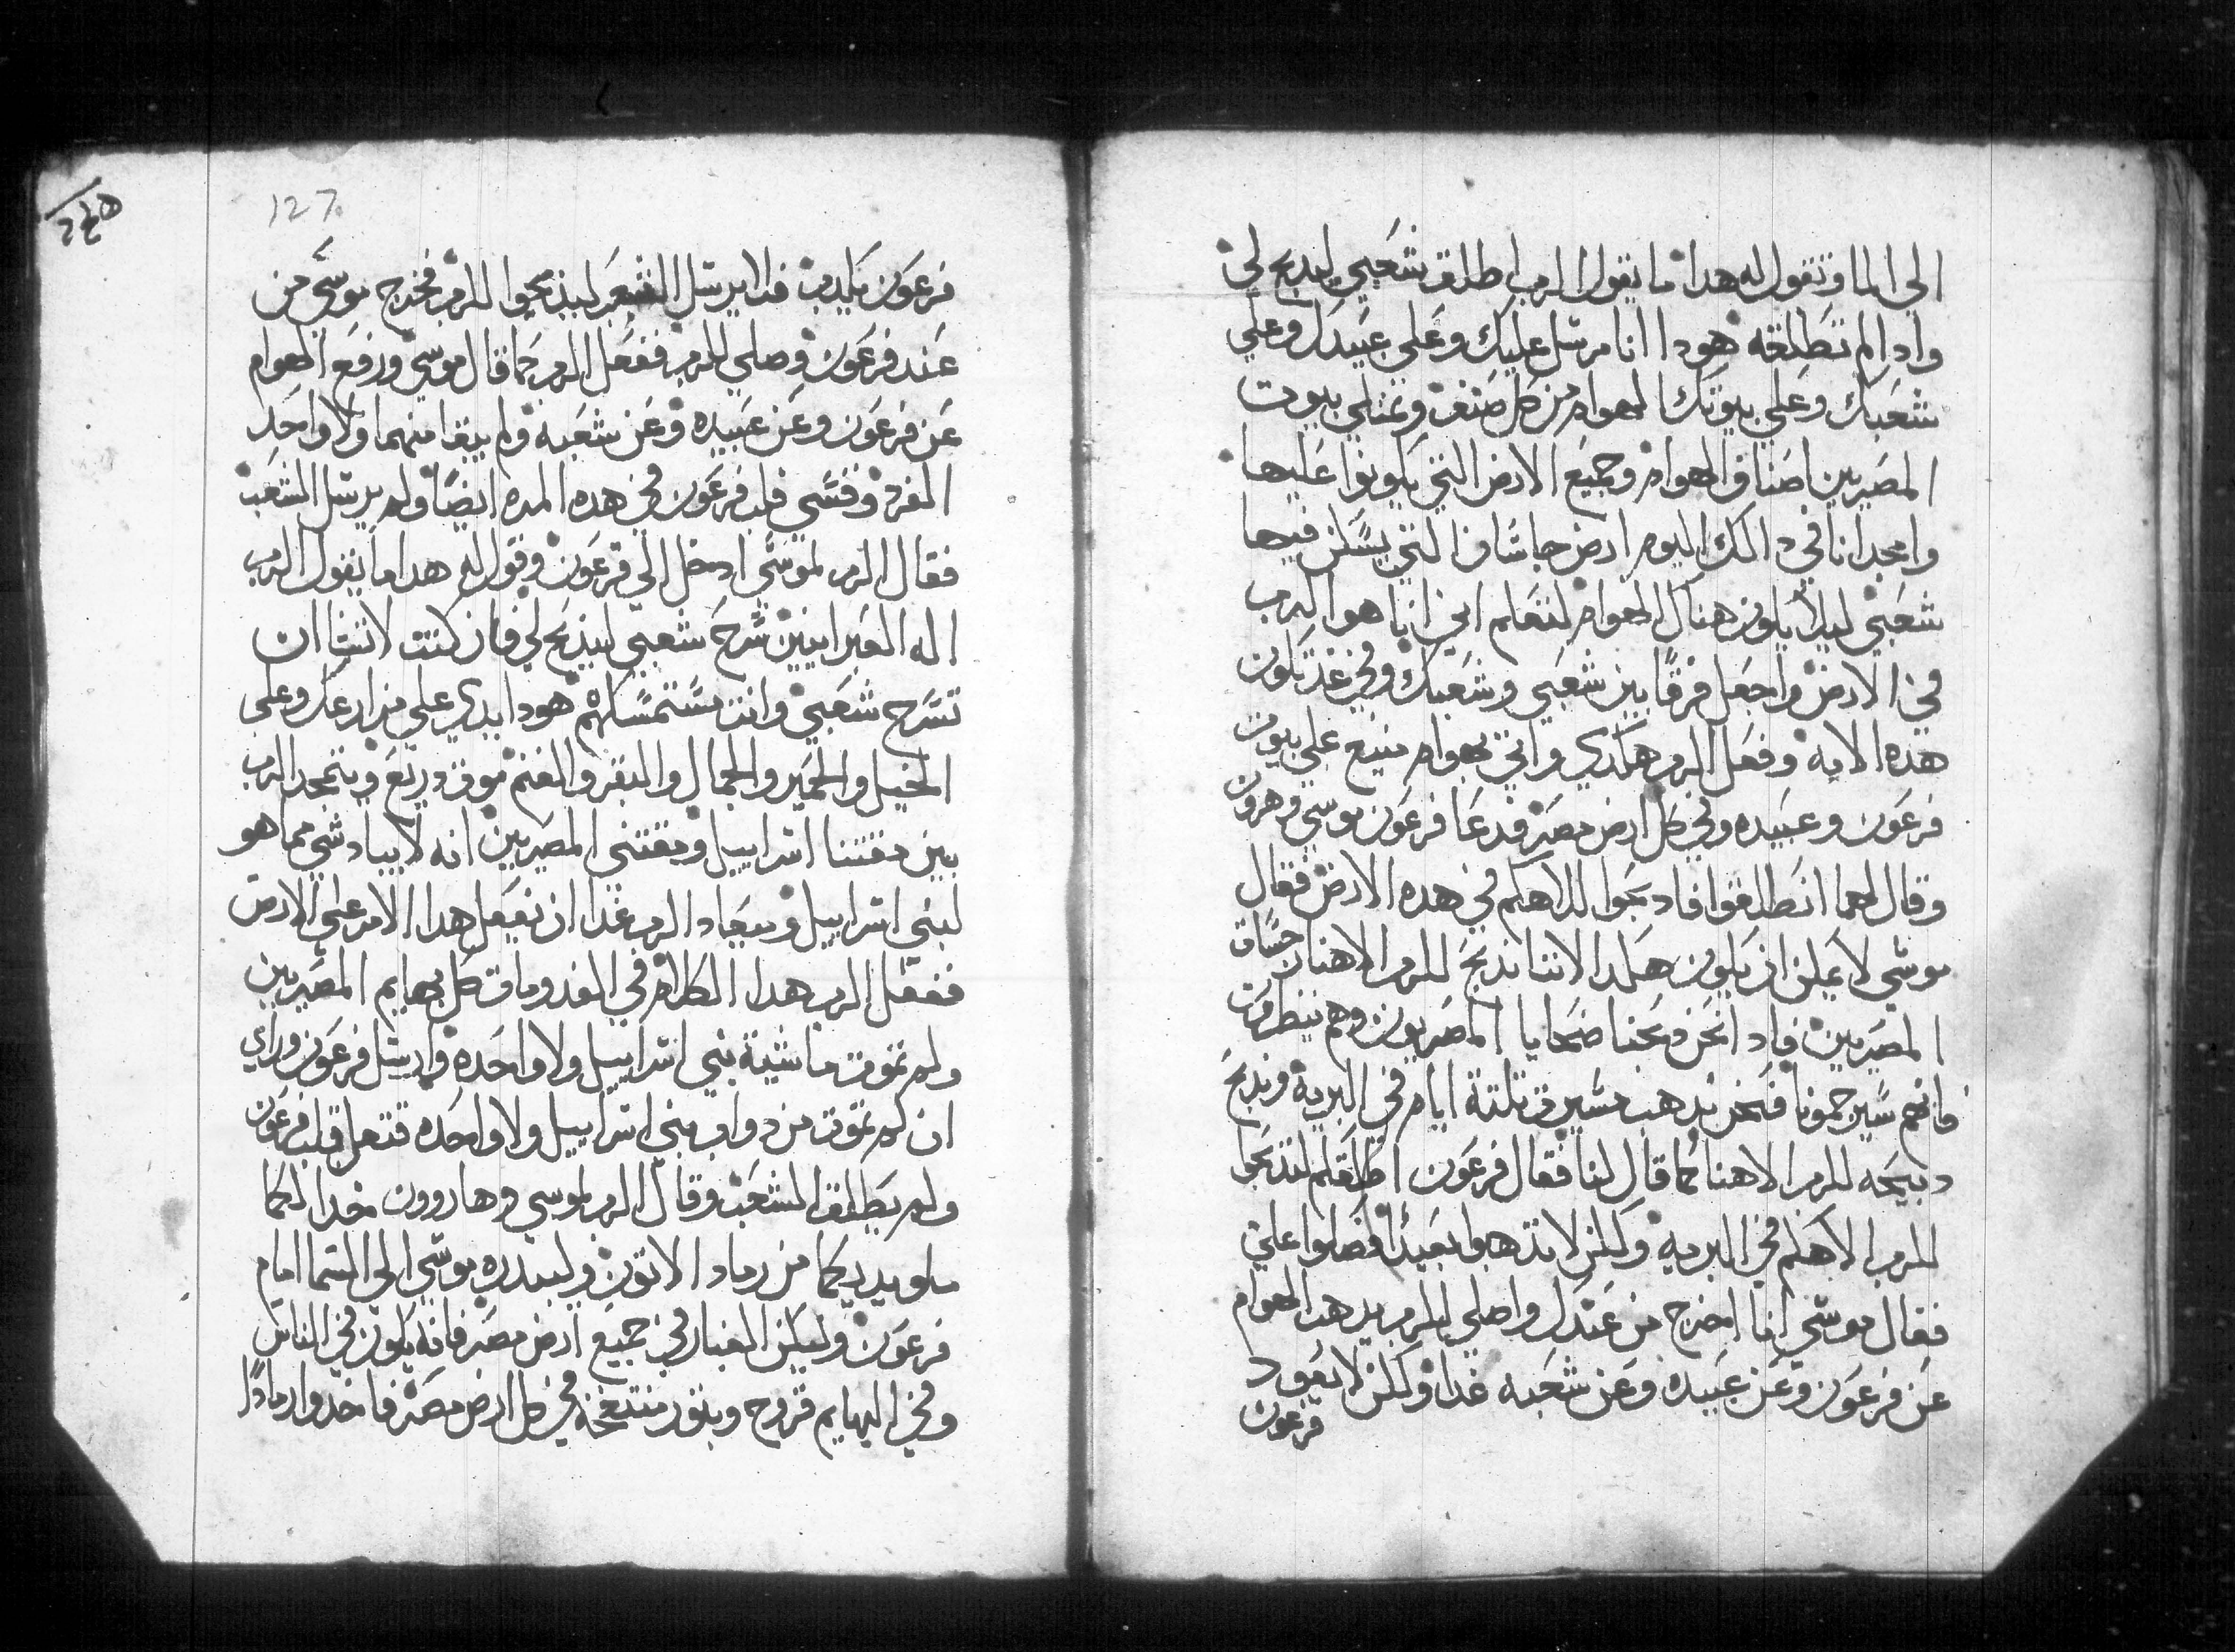 الي الما وتقول له هدا ما يقول الرب اطلق شعبي ليدبح لي
وادا لم تطلقه هودا انا مرسل عليك وعلي عبيدك وعلي
شعبك وعلي بيوتك الهوام من كل صنف وتمتلي بيوت
المصريين اصناف الهوام وجميع الارض التي يكونوا عليها
وامجد انا في دالك اليوم ارض جاشان التي يسكن فيها
شعبي ليلا يكون هناك الهوام لتعلم اني انا هو الرب
في الارض واجعل فرقا بين شعبي وشعبك وفي غد تكون
هده الايه وفعل الرب هكدي واتي بهوام منيع علي بيوت
فرعون وعبيده وفي كل ارض مصر فدعا فرعون موسي وهرون
وقال لهما انطلقوا فادبحوا للاهكم في هده الارض فقال
موسي لا يمكن ان يكون هكدا لاننا ندبح للرب الاهنا نجسات
المصريين فادا نحن دبحنا ضحايا المصريون وهم ينظرون
فانهم سيرجمونا فنحن ندهب مسيرة تلتة ايام في البرية وندبح
دبيحه للرب الاهنا كما قال لنا فقال فرعون اطلقكم لتدبحوا
للرب الاهكم في البرية ولكن لا تدهبوا بعيدا فصلوا علي
فقال موسي انا اخرج من عندك واصلي للرب يدهب الهوام
عن فرعون وعن عبيده وعن شعبه غدا ولكن لا يعود
فرعون
127
فرعون يكدب فلا يرسل الشعب ليذبحوا للرب فخرج موسي من
عند فرعون وصلي للرب ففعل الرب كما قال موسي ورفع الهوام
عن فرعون وعن عبيده وعن شعبه ولم يبقا منهما ولا واحد
المفرد وقسي قلب فرعون في هده المره ايضا ولم يرسل الشعب
فقال الرب لموسي ادخل الي فرعون وقول له هدا ما يقول الرب
اله العبرانيين سرح شعبي ليذبح لي فان كنت لا تشا ان
تسرح شعبي وانت تستمسكهم هودا يدي علي مزارعك وعلي
الخيل والحمير والجمال والبقر والغنم موت دريع ويتمجد الرب
بين مقتنا اسراييل ومقتني المصريين انه لا يباد شي مما هو
لبني اسراييل وميعاد الرب غدا ان يفعل هدا الامر علي الارض
ففعل الرب هدا الكلام في الغد ومات كل بهايم المصريين
ولم تموت ماشية بني اسراييل ولا واحده وارسل فرعون وراي
ان لم تموت من دواب بني اسراييل ولا واحده فتقل قلب فرعون
ولم يطلق الشعب وقال الرب لموسي وهارون خدا لكما
ملو يديكما من رماد الاتون وليبدره موسي الي السما امام
فرعون وليكن الغبار في جميع ارض مصر فانه يكون في الناس
وفي البهايم قروح وبتور منتفخه في كل ارض مصر فاخدوا رمادا